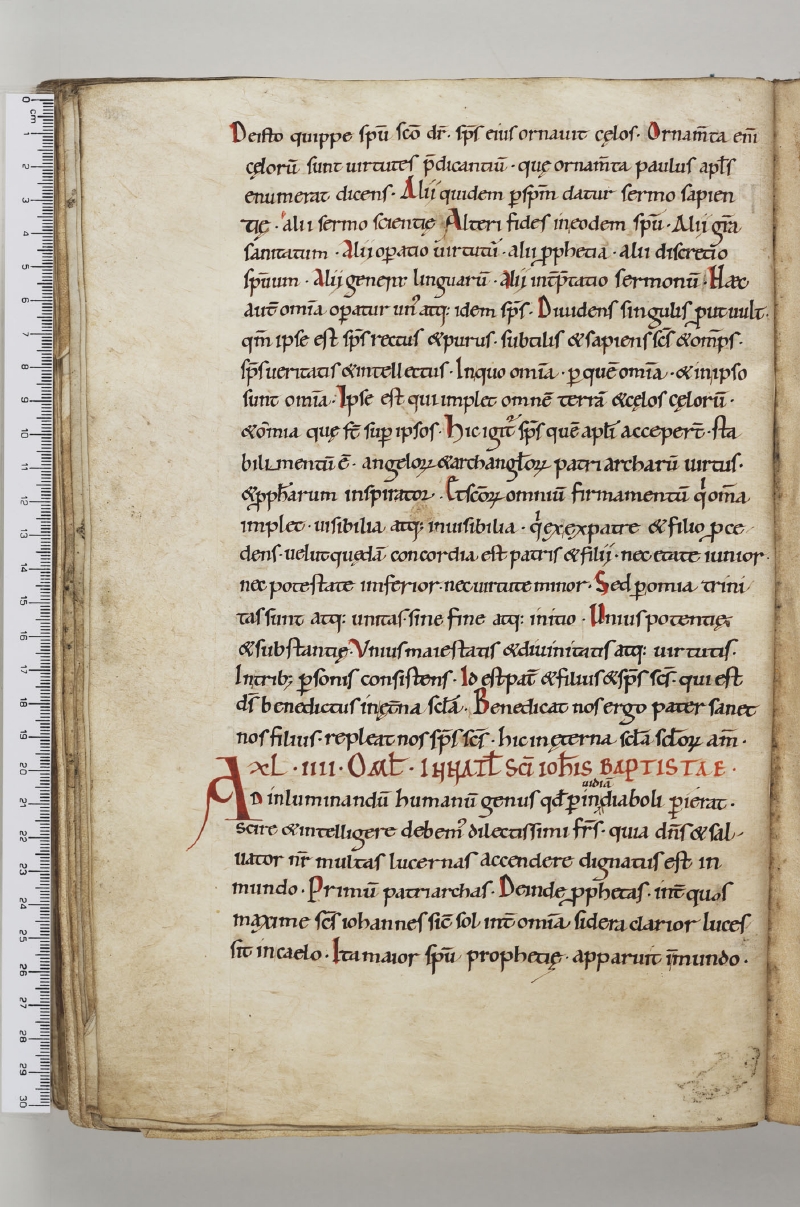 Deisto quippe spū scō dr̄. sp̄s eius ornauit cęlos. Ornam̄ta em̄
cęlorū sunt uirtutes p̄dicantiū. quę ornam̄ta paulus apl̄s
enumerat dicens. Alii quidem p̱ sp̄m datur sermo sapien
tię. alii sermo scientię Alteri fides ineodem spū. Alii grā
sanitatum. Alii op̱atio uirtutū. alii ꝓphetia. alii discretio
sp̄uum. Alii genera linguarū. alii int̄p̄tatio sermonū. Hæc
aut̄ omīa op̱atur un᾽ atq: idem sp̄s. Diuidens singulis ꝓut uult.
qm̄ ipse est sp̄s rectus & purus. subtilis & sapiens sc̄s & omp̄s.
sp̄s ueritatis & intellectus. In quo omīa. p̱ quē omīa. & in ipso
sunt omīa. Ipse est qui implet omnē terrā & cęlos cęlorū.
& om̄ia quę st̄ sup̱ ipsos. Hic igit᾽ sp̄s quē apl̄i accepert̄. sta
bilimentū ē. angeloꝝ & archangl̄oꝝ patriarcharū uirtus.
& ꝓph̄arum inspirator. Et sc̄oꝝ omniū firmamentū qͥ om̄a
implet. uisibilia atq: inuisibilia. qͥ ex expatre & filio ꝓce
dens. uelut quędā concordia est patris & filii. nec etate iunior.
nec potestate inferior. nec uirtute minor. Sed p̱ omia trini
tas sunt atq: unitas. sine fine atq: initio. Unius potentię
& substantię. Vnius maiestatis & diuinitatis atq: uirtutis.
In trib; p̱sonis consistens. Id est pat̄ & filius & sp̄s sc̄s. qui est
ds̄ benedictus in ęt̄na scl̄a. Benedicat nos ergo pater sanct
nos filius. repleat nos sp̄s sc̄s. hic in ęterna scl̄a scl̄oꝝ am̄.
XL. IIII. OML̄. INNATL̄ SC̄I IOH̄IS BAPTISTAE.
Ad inluminandū humanū genus qd̄ p̱ inuidiā diaboli p̱ierat.
scire & intelligere debem᾽ dilectissimi fr̄s. quia dn̄s & sal
uator nr̄ multas lucernas accendere dignatus est in
mundo. Primū patriarchas. Deinde ꝓphetas. int̄ quos
maxime sc̄s iohannes sic̄ sol int̄ omīa sidera clarior luces
sit in caelo. Ita maior spū prophetię. apparuit īmundo.